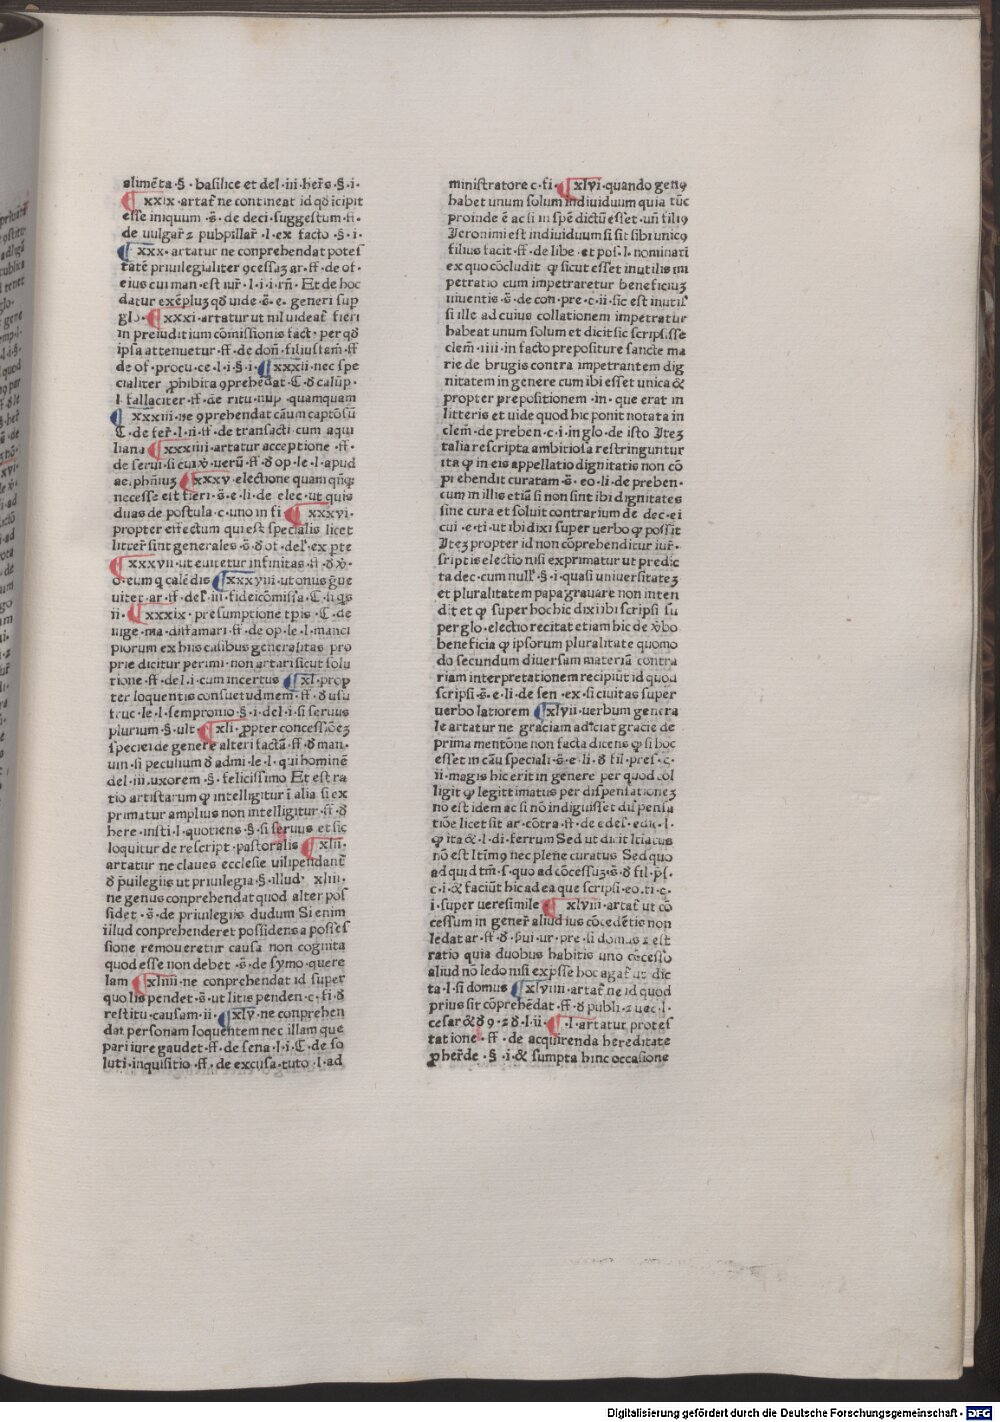 alimẽta ·§· basilice et del ·iii hers̃ ·§·i·
xxix ·artat̃ ne contineat id qd̓ ĩcipit
esse iniquum ·s̃·de deci·suggestum·fi·
de uulgar̃ ⁊ pubpillar̃ ·l·ex facto ·§·i·
xxx·artatur ne conprehendat potes
tatẽ priuilegialiter ꝯcessaȝ ar·ff·de of·
eius cui man·est iur̃ ·l·i·i·rñ· Et de hoc
datur exẽpluȝ qd̓ uide ·s̃·e· generi sup
glo· xxxi·artatur ut nil uideat̃ fieri
in preiuditium cõmissionis fact· per qd̓
ipsa attenuetur ·ff·de doñ·filiusfam̃·ff
de of·procu·ce·l·i·§·i· xxxii·nec spe
cialiter ꝓhibita ꝯprehẽdat ·C·d̓ calũp·
l·fallaciter ·ff·de ritu·nup·quamquam
xxxiii·ne ꝯprehendat cãum captõsũ
C·de fer̃·l·ii·ff·de transacti·cum aqui
liana xxxiiii·artatur acceptione·ff·
de serui·si cui ·v̓·uerũ·ff·d̓ op·le·l·apud
xxxv·electione quam qñqȝ
necesse est fieri ·s̃·e·li·de elec·ut quis
duas de postula·c·uno in fi xxxvi·
propter effectum qui est specialis licet
litter̃ sint generales ·s̃·d̓ of·del̃·ex pte
xxxvii·ut euitetur infinitas·ff·d̓ v̓·
o·eum q̃ calẽdis xxxviii·ut onus g̃ue
uitet̃·ar·ff·del̃·iii·fideicõmissa·C·si qs
ii· xxxix·presumptione tpis·C·de
iuge·ma·diffamari·ff·de op·le·l·manci
piorum ex hiis casibus generalitas pro
prie dicitur perimi·non artari sicut solu
tione·ff·del·i·cum incertus xl·prop
ter loquentis consuetudinem·ff·d̓ usu
fruc·le·l·sempronio·§·i·del·i·si seruus
plurium·§·ult· xli·ꝓpter concessiõeȝ
speciei de genere alteri factã·ff·d̓ man·
uin·si peculium d̓ admi·le·l·qui hominẽ
del·iii·uxorem·§·felicissimo Et est ra
tio artistarum ꝙ intelligitur ĩ alia si ex
primatur amplius non intelligitur·ff·d̓
here·insti·l·quotiens·§·si seruus et sic
loquitur de rescript·pastoralis xlii·
artatur ne claues ecclesie uilipendant̃
d̓ p̃uilegiis ut priuilegia·§·illud· xliii·
ne genus conprehendat quod alter pos
sidet·s̃·de priuilegiis dudum Si enim
illud conprehenderet possidens a posses
sione remoueretur causa non cognita
quod esse non debet ·s̃·de symo·quere
lam xliiii·ne conprehendat id super
quo lis pendet·s̃·ut litis penden·c·fi·d̓
restitu·causam·ii· xlv·ne conprehen
dat personam loquentem nec illam que
pari iure gaudet·ff·de sena·l·i·C·de so
luti·inquisitio·ff·de excusa·tuto·l·ad
ministratore c·fi· xlvi·quando genꝯ
habet unum solum indiuiduum quia tũc
proinde ẽ ac si in spẽ dictũ esset·uñ filiꝯ
Jeronimi est indiuiduum si sit sibi unicꝯ
filius facit·ff·de libe·et pos·l·nominari
ex quo cõcludit̃ ꝙ sicut esset inutilis im
petratio cum impetraretur beneficiuȝ
uiuentis·s̃·de con·pre·c·ii·sic est inutil̃
si ille ad cuius collationem impetratur
habeat unum solum et dicit sic scripsisse
clem̃·iiii·in facto prepositure sancte ma
rie de brugis contra impetrantem dig
nitatem in genere cum ibi esset unica &
propter prepositionem·in·que erat in
litteris et uide quod hic ponit notata in
clem̃·de preben·c·i·in glo·de isto Iteȝ
talia rescripta ambitiosa restringuntur
ita ꝙ in eis appellatio dignitatis non cõ
prehendit curatam·s̃·eo·li·de preben·
cum in illis etiã si non sint ibi dignitates
sine cura et soluit contrarium de dec·ei
cui·e·ti·ut ibi dixi super uerbo ꝙ possit
Iteȝ propter id non cõprehenditur iur̃·
scriptis electio nisi exprimatur ut predic
ta dec·cum null̃·§·i·quasi uniuersitateȝ
et pluralitatem papa grauare non inten
dit et ꝙ super hoc hic dixi ibi scripsi su
per glo·electio recitat etiam hic de v̓bo
beneficia ꝙ ipsorum pluralitate quomo
do secundum diuersam materiã contra
riam interpretationem recipiut id quod
scripsi·s̃·e·li·de sen·ex·si ciuitas super
uerbo latiorem xlvii·uerbum genera
le artatur ne graciam adiciat gracie de
prima mentõne non facta dicens ꝙ si hoc
esset in cãu speciali·s̃·e·li·d̓ fil·pres̃·c·
ii·magis hic erit in genere per quod col
ligit ꝙ legittimatus per dispensationeȝ
no est idem ac si nõ indiguisset dispensa
tiõe licet sit ar·cõtra·ff·de edel̃·edic·l·
ꝙ ita &·l·di·ferrum Sed ut dicit ltiatus
nõ est ltimꝯ nec plene curatus Sed quo
ad quid tm̃·s·quo ad cõcessuȝ·s̃·d̓ fil·ps̃·
c·i·& faciũt hic ad ea que scripsi·eo·ti·c·
i·super ueresimile xlviii·artat̃ ut cõ
cessum in gener̃ aliud ius cõcedẽtis non
ledat ar·ff·d̓ p̃ui·ur·pre·si domus ⁊ est
ratio quia duobus habitis uno cõcesso
aliud nõ ledo nisi exp̃sse hoc agat̃ ut dic
ta·l·si domus xlviiii·artat̃ ne id quod
prius sit cõprehẽdat·ff·d̓ publi·⁊ uec·l·
cesar & d̓ ꝯ·⁊ d̓·l·ii· ·l·artatur protes
tatione·ff·de acquirenda hereditate
ꝓ her̃de·§·i·& sumpta hinc occasione
Digitalisierung gefördert durch die Deutsche Forschungsgemeinschaft - DFG